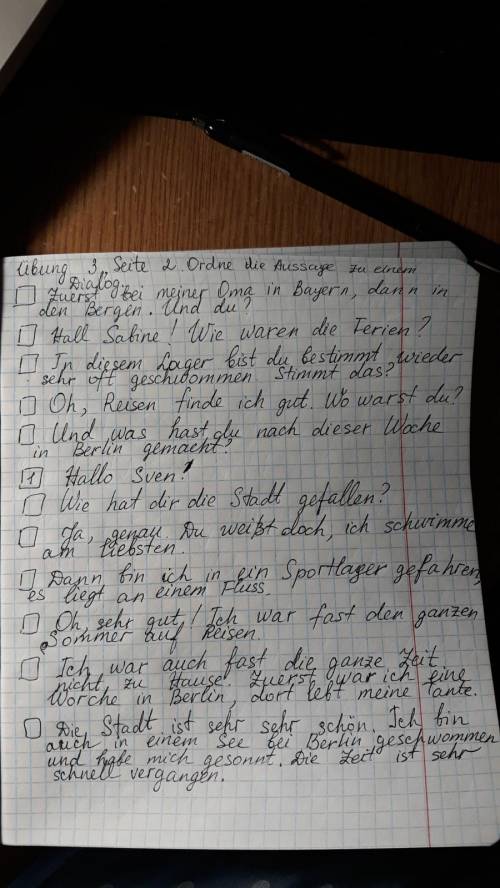 Übung 3, Seite 2. Ordne die Aussage zu einem
Dialog.
Zuerst bei meiner Oma in Bayern, dann in
den Bergen. Und du?
Hall Sabine! Wie waren die Ferien?
In diesem Lager bist du bestimmt wieder
sehr oft geschwommen. Stimmt das?
Oh, Reisen finde ich gut. Wo warst du?
Und was hast du nach dieser Woche
in Berlin gemacht?
1 Hallo Sven!
Wie hat dir die Stadt gefallen?
Ja, genau. Du weißt doch, ich schwimme
am liebsten.
Dann bin ich in ein Sportlager gefahren,
es liegt an einem Fluss.
Oh, sehr gut! Ich war fast den ganzen
Sommer auf Reisen.
Ich war auch fast die ganze Zeit
nicht zu Hause. Zuerst war ich eine
Worche in Berlin, dort lebt meine Tante.
Die Stadt ist sehr sehr schön. Ich bin
auch in einem See bei Berlin geschwommen
und habe mich gesonnt. Die Zeit ist sehr
schnell vergangen.